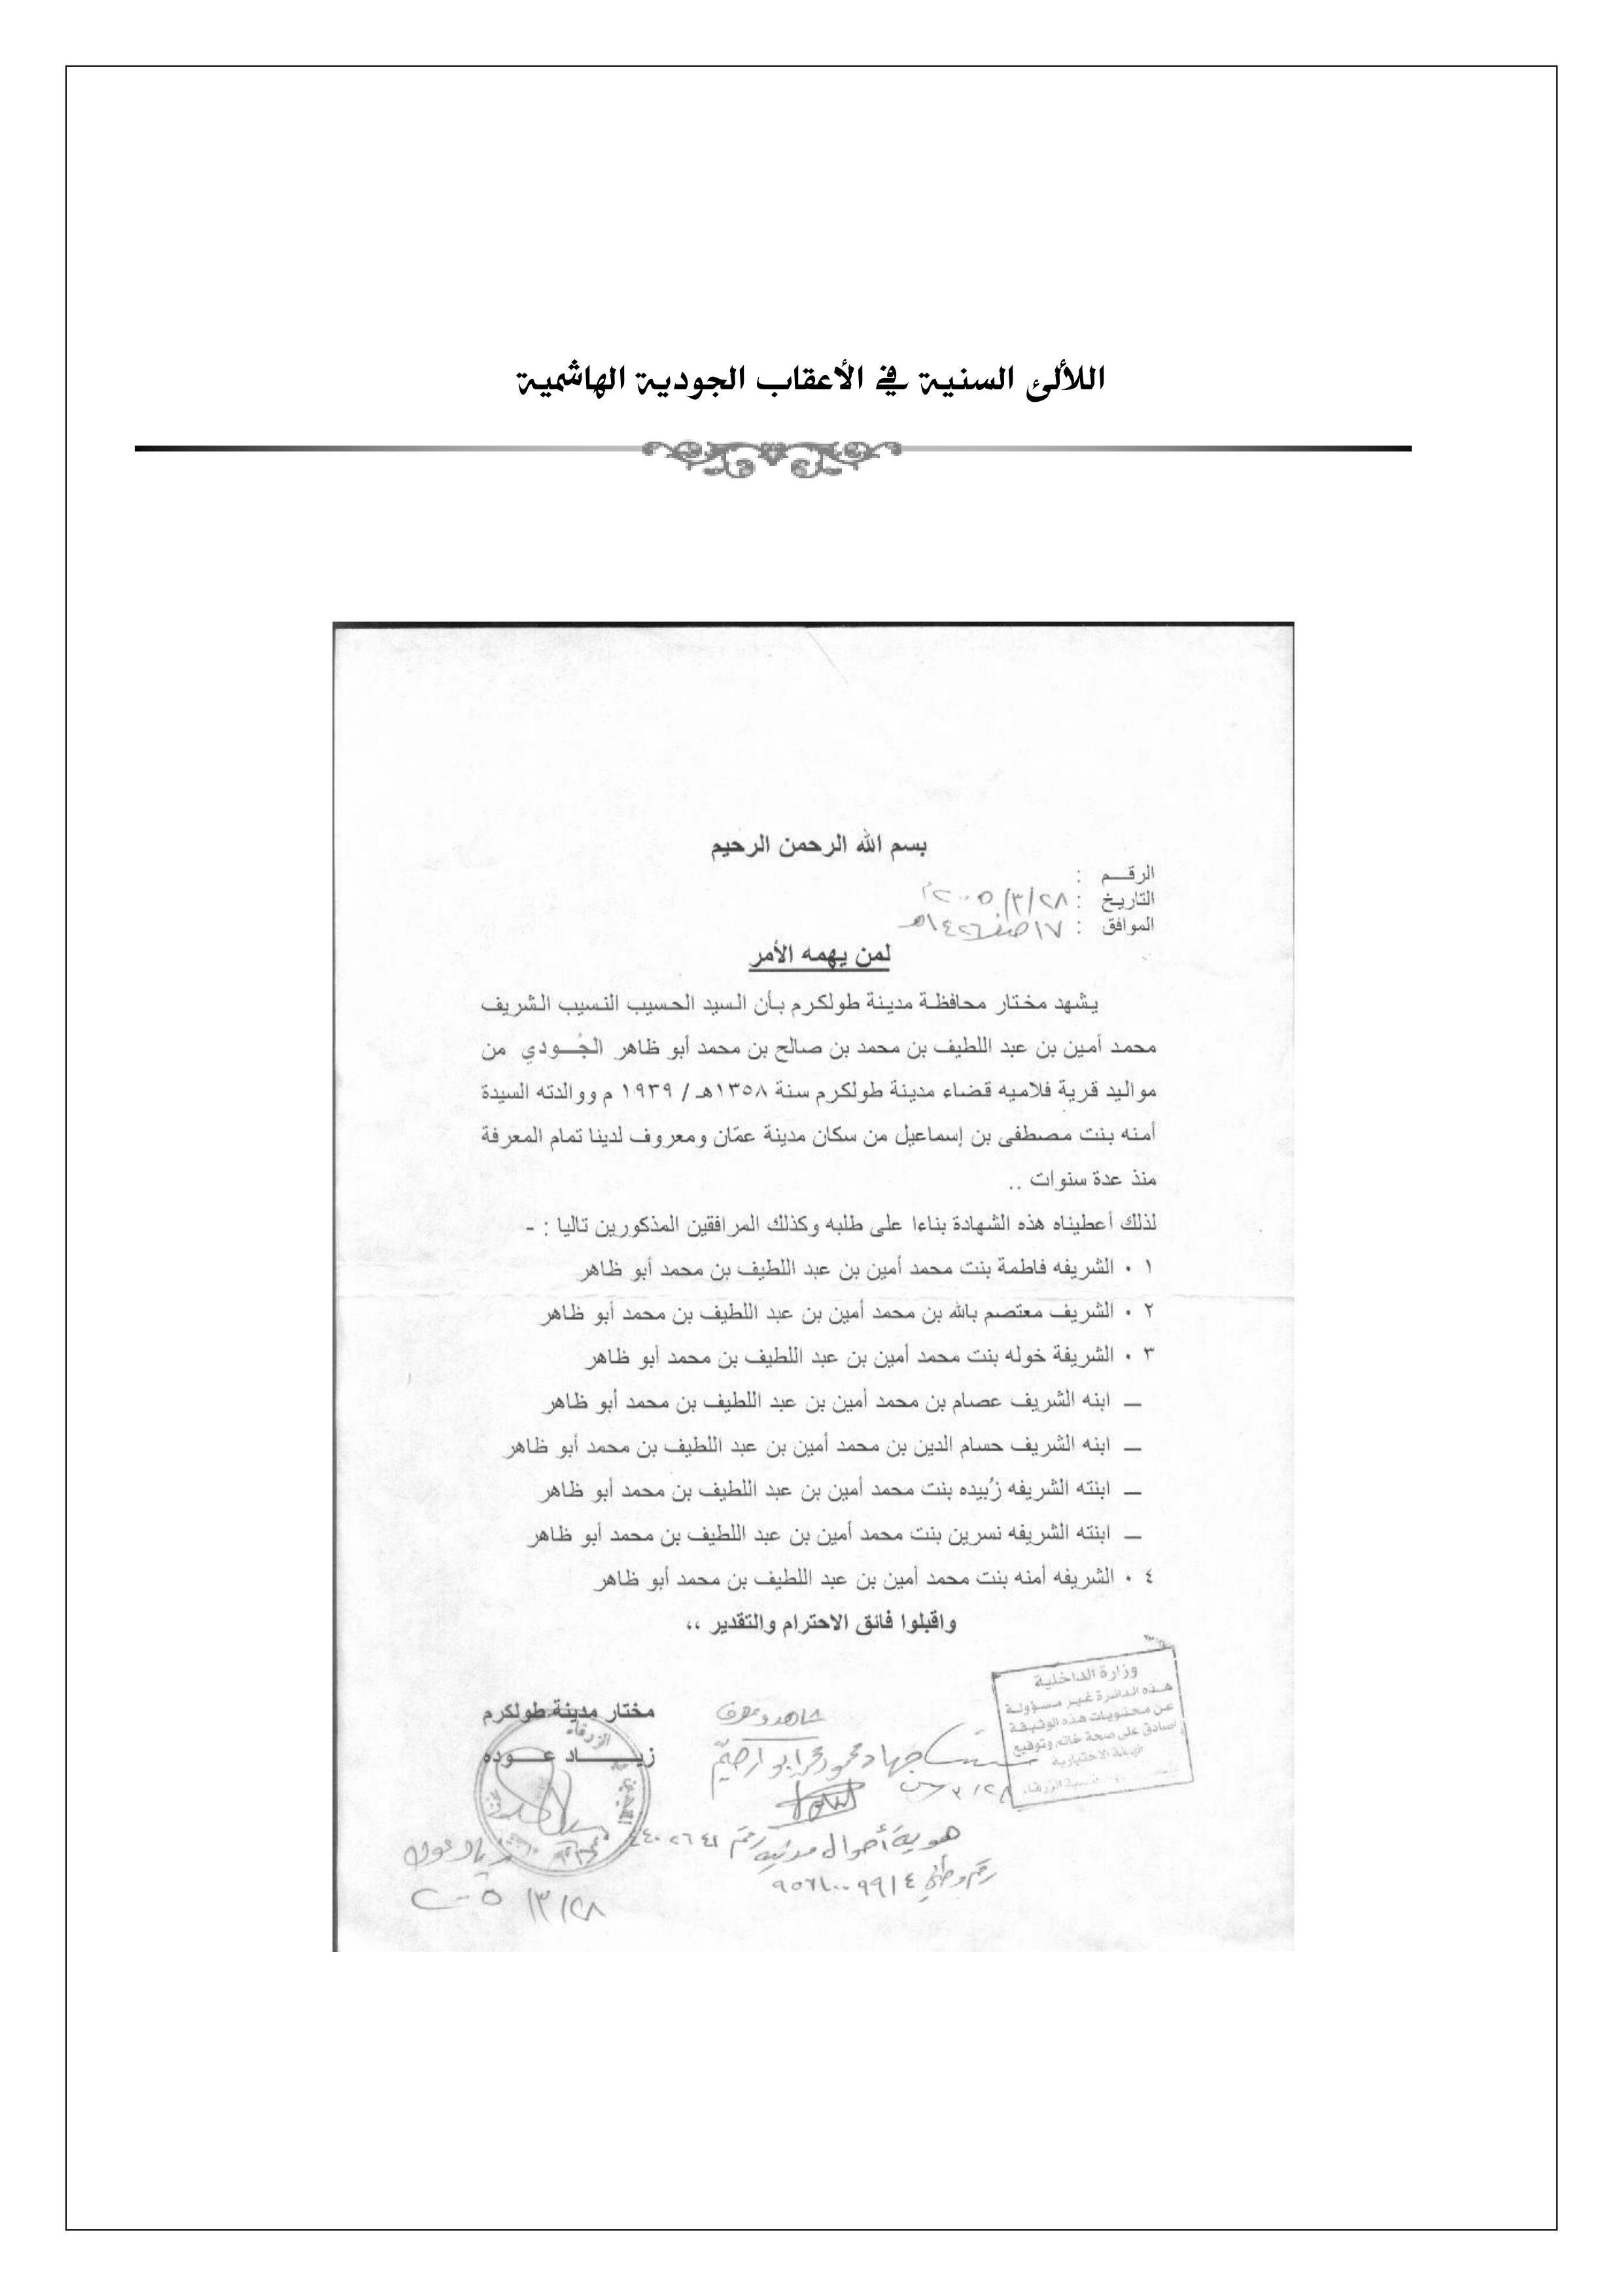 اللآلئ السنية في الأعقاب الجودية الهاشمية
بسم الله الرحمن الرحيم
الرقـــم :
التاريخ : ٢٠٠٥/٣/٢٨م
الموافق : ١٧ صفر ١٤٢٦هـ
لمن يهمه الأمر
يشهد مختار محافظة مدينة طولكرم بأن السيد الحسيب النسيب الشريف
محمد أمين بن عبد اللطيف بن محمد بن صالح بن محمد أبو ظاهر الجُــودي من
مواليد قرية فلاميه قضاء مدينة طولكرم سنة ١٣٥٨هـ / ١٩٣٩ م ووالدته السيدة
أمنه بنت مصطفى بن إسماعيل من سكان مدينة عمّان ومعروف لدينا تمام المعرفة
منذ عدة سنوات ..
لذلك أعطيناه هذه الشهادة بناءا على طلبه وكذلك المرافقين المذكورين تاليا : -
١ . الشريفه فاطمة بنت محمد أمين بن عبد اللطيف بن محمد أبو ظاهر
٢ . الشريف معتصم بالله بن محمد أمين بن عبد اللطيف بن محمد أبو ظاهر
٣ . الشريفة خوله بنت محمد أمين بن عبد اللطيف بن محمد أبو ظاهر
ــ ابنه الشريف عصام بن محمد أمين بن عبد اللطيف بن محمد أبو ظاهر
ــ ابنه الشريف حسام الدين بن محمد أمين بن عبد اللطيف بن محمد أبو ظاهر
ــ ابنته الشريفه زُبيده بنت محمد أمين بن عبد اللطيف بن محمد أبو ظاهر
ــ ابنته الشريفه نسرين بنت محمد أمين بن عبد اللطيف بن محمد أبو ظاهر
٤ . الشريفه أمنه بنت محمد أمين بن عبد اللطيف بن محمد أبو ظاهر
واقبلوا فائق الاحترام والتقدير ،،
وزارة الداخلية
هذه الدائرة غير مسؤولة
عن محتويات هذه الوثيقة
اصادق على صحة خاتم وتوقيع
شاهد ومعرف
جهاد محمود محمد ابو
هوية أحوال مدنية رقم
رقم وطني
مختار مدينة طولكرم
زيـــاد عــوده
الزرقاء
زياد عوده
٢٠٠٥/٣/٢٨